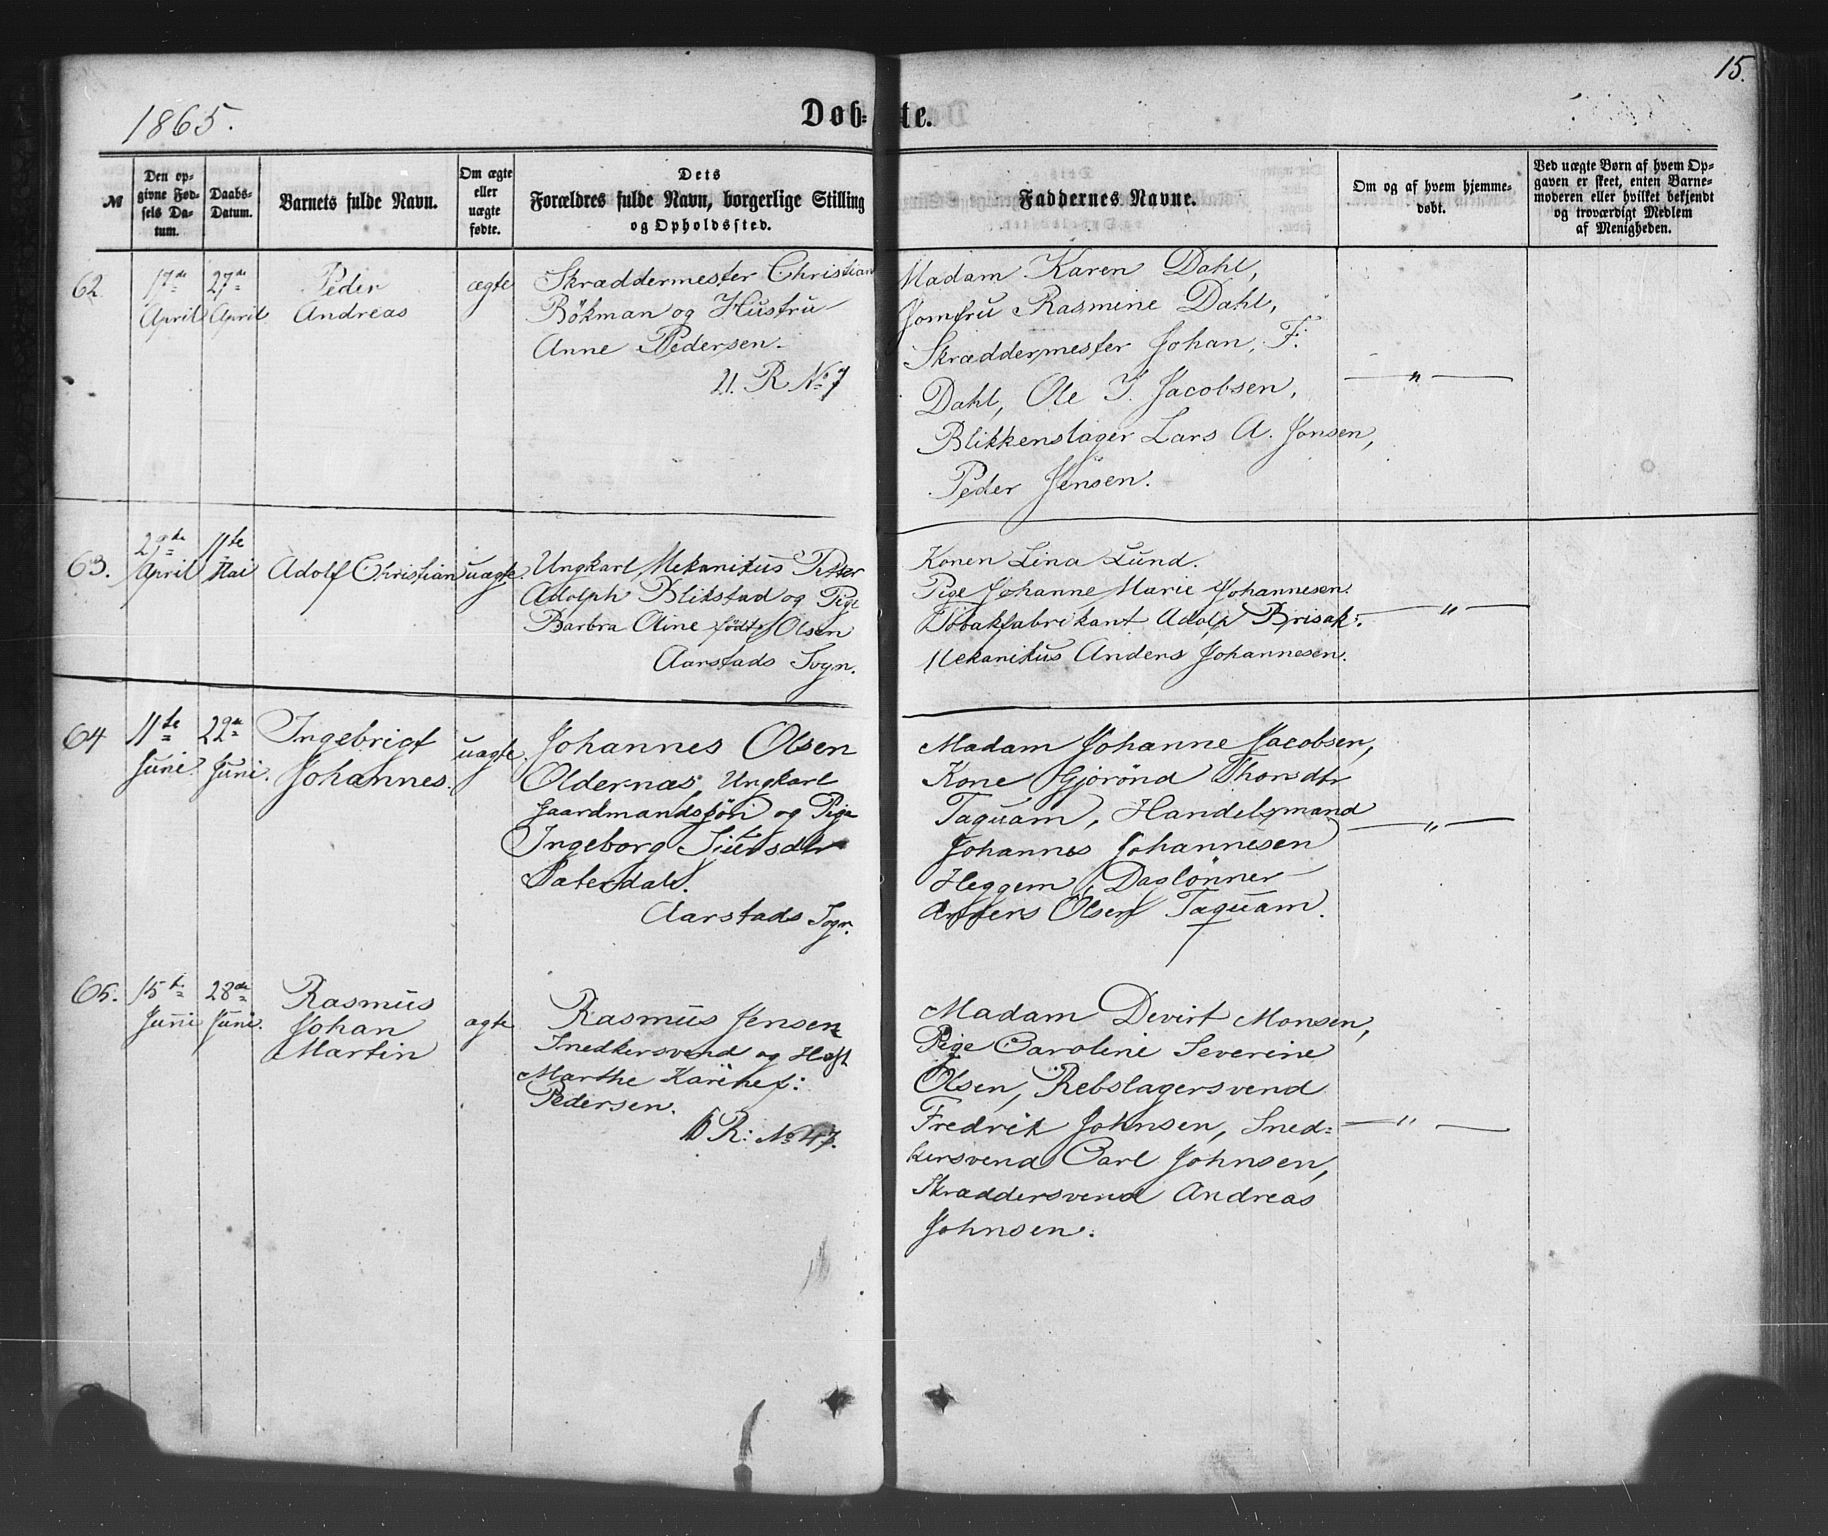 15.
1865.
Døb=te.
№
Den op-
givne Fød-
sels Da-
tum.
Daabs-
Datum.
Barnets fulde Navn.
Om ægte
eller
uægte
fødte.
Dets
Forældres fulde Navn, borgerlige Stilling
og Opholdssted.
Faddernes Navne.
Om og af hvem hjemme-
døbt.
Ved uægte Børn af hvem Op-
gaven er skeet, enten Barne-
moderen eller hvilket bekjendt
og troværdigt Medlem
af Menigheden.
62
17de
April
27de
April
Peder
Andreas
ægte
Skræddermester Christian
Bökman og Hustru
Anne Pedersen.
21. R № 7
Madam Karen Dahl,
Jomfru Rasmine Dahl,
Skræddermester Johan. F.
Dahl, Ole I. Jacobsen,
Blikkenslager Lars A. Jonsen,
Peder Jensen.
— „ —
63.
29de
April
11te
Mai
Adolf Christian
uægte.
Ungkarl, Mekanikus Petter
Adolph Blikstad og Pige
Barbra Oline født Olsen
Aarstads Sogn.
Konen Lina Lund.
Pige Johanne Marie Johannesen.
Tobakfabrikant Adolp Brisak.
Mekanikus Anders Johannesen.
— „ —
64
11te
Juni.
22de
Juni.
Ingebrigt
Johannes.
uægte.
Johannes Olsen
Oldernæs, Ungkarl
Gaardmandssön og Pige
Ingeborg Siursdtr
Aarstads Sogn.
Madam Johanne Jacobsen,
Kone Gjorönd Thorsdtr
Taquam, Handelsmand
Johannes Johannesen
Heggem, Daglönner
Anders Olsen Taquam.
— „ —
65.
15de
Juni
28de
Juni.
Rasmus
Johan
Martin
ægte
Rasmus Jensen
Snedkersvend og Hust
Marthe Karine f:
Pedersen.
R: № 47.
Madam Devirt Monsen,
Pige Caroline Severine
Olsen, Rebslagersvend
Fredrik Johnsen, Sned=
kersvend Carl Johnsen,
Skræddersvend Andreas
Johnsen.
— „ —